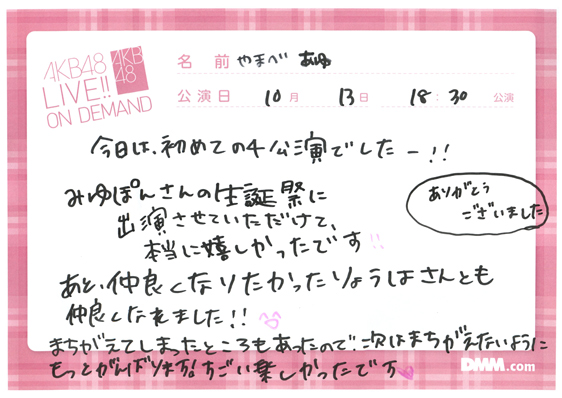 AKB48
LIVE!!
ON DEMAND
AKB
48
名前 やまべ あゆ
公演日 10月 13日 18:30 公演
今日は、初めての4公演でしたー!!
みゆぽんさんの生誕祭に
出演させていただけて、
本当に嬉しかったです!!
ありがとう
ございました
あと、仲良くなりたかったりょうはさんとも
仲良くなれました!!
まちがえてしまったところもあったので、次はまちがえないように
もっとがんばります!すごい楽しかったです
DMM.com